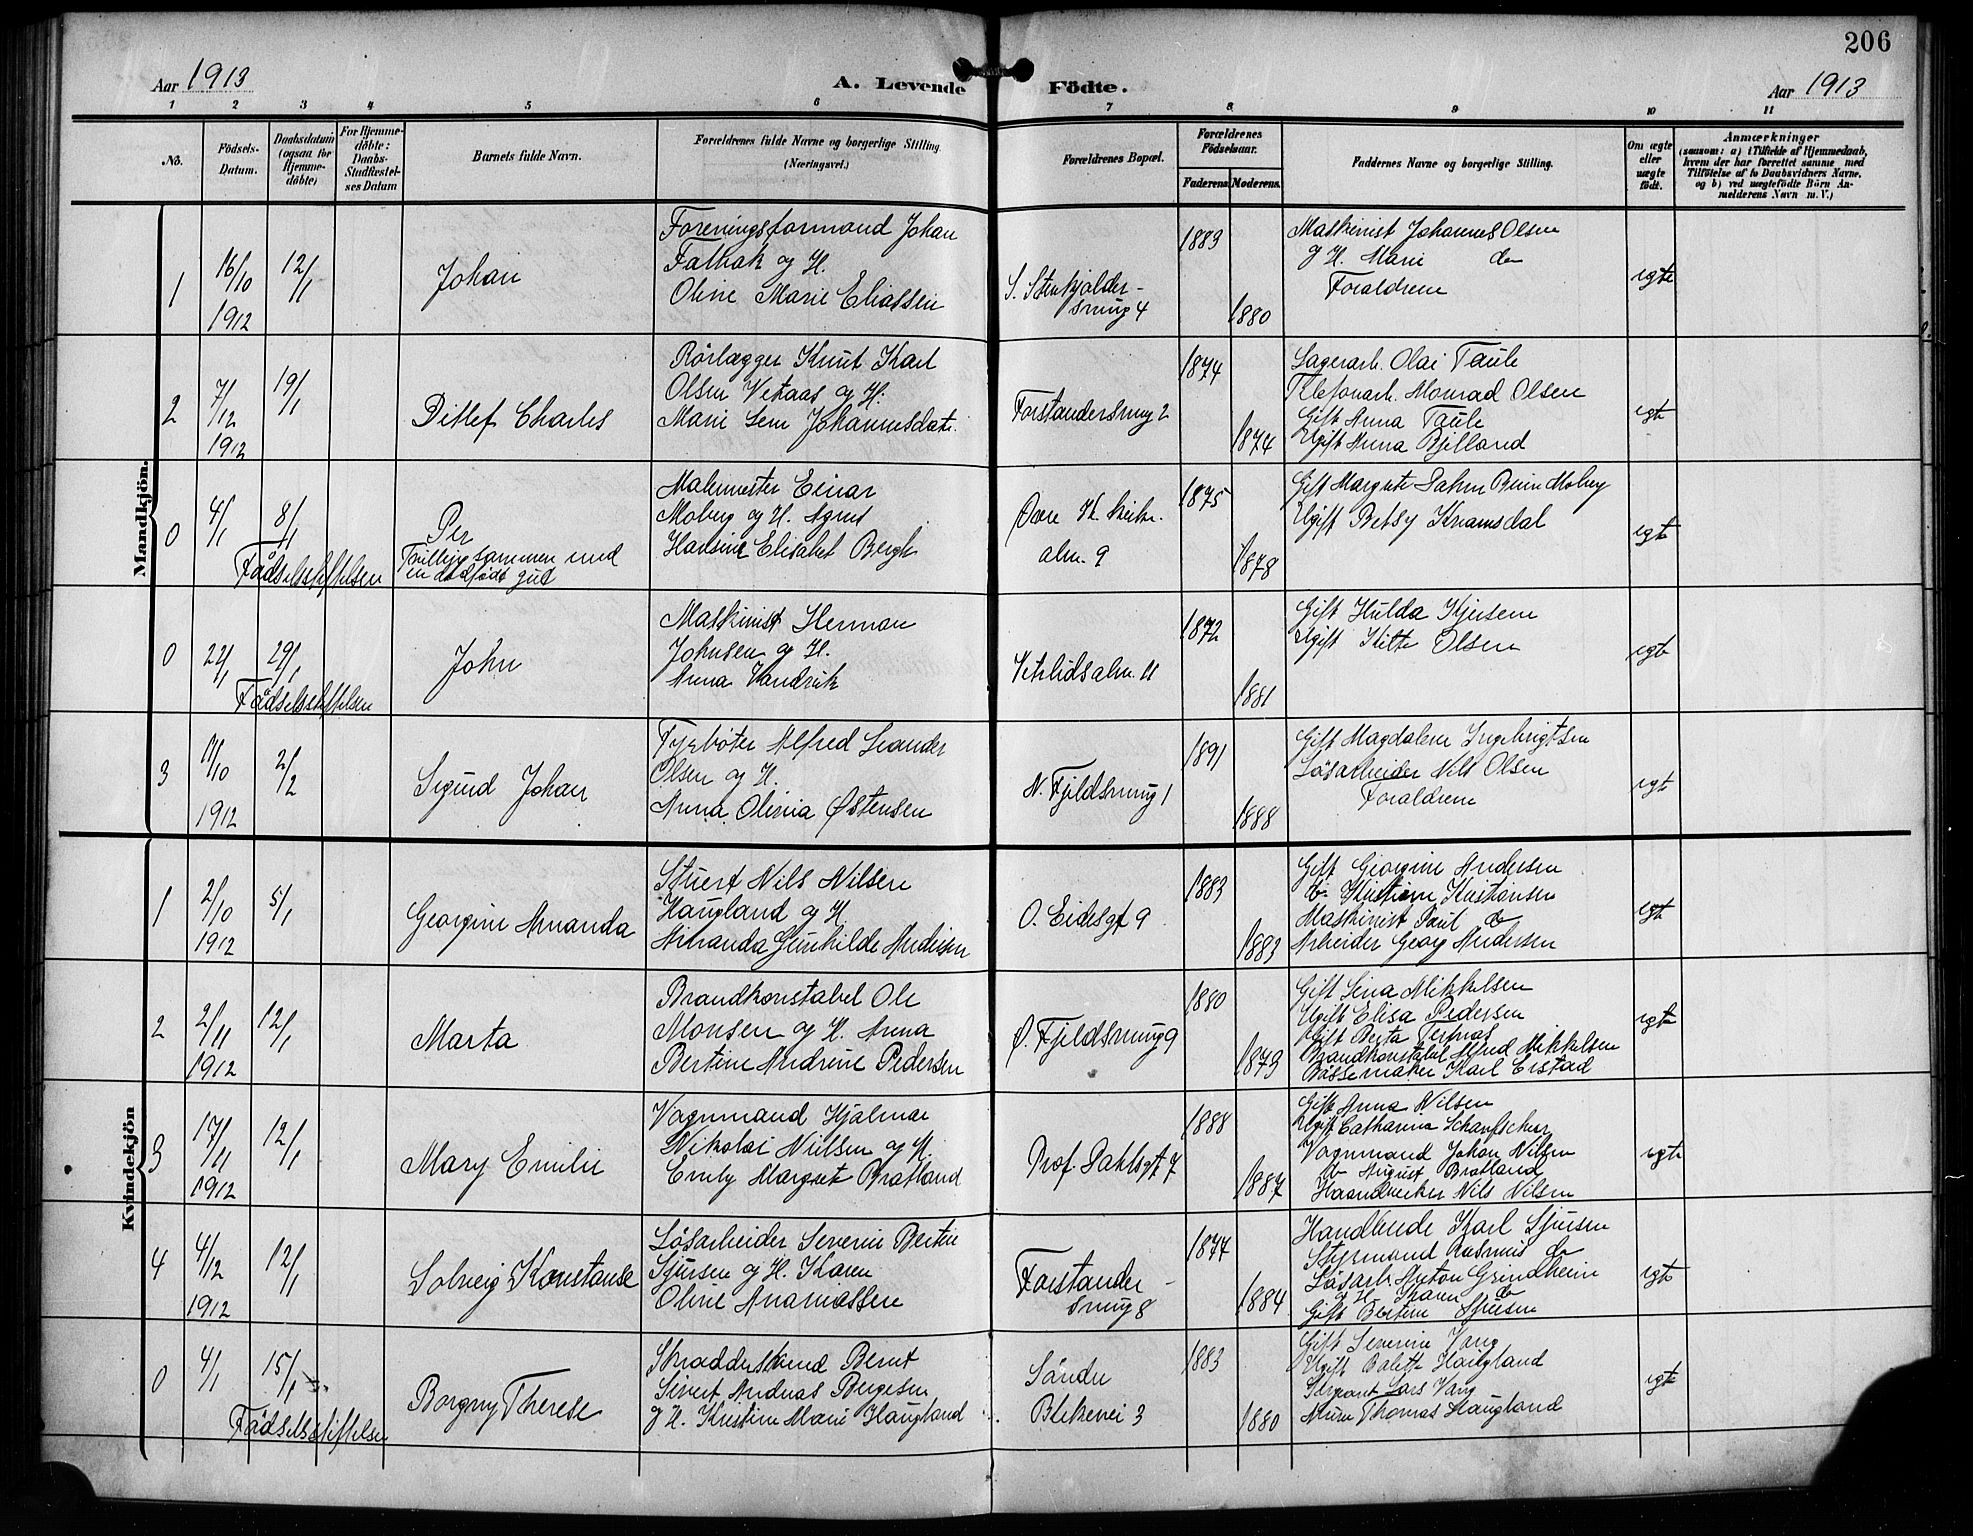 206
Aar 1913
A. Levende Födte.
Aar 1913
1 2 3 4 5 6 7 8 9 10 11
No.
Födsels-
Datum.
Daabsdatum
(ogsaa for
Hjemme-
döbte)
For Hjemme-
döbte:
Daabs-
Stadfæstel-
ses Datum
Barnets fulde Navn.
Forældrenes fulde Navne og borgerlige Stilling
(Næringsvei.)
Forældrenes Bopæl.
Forældrenes
Födselsaar.
Faderens.
Moderens.
Faddernes Navne og borgerlige Stilling.
Om ægte
eller
uægte
födt.
Anmærkninger
(saasom: a) i Tilfælde af Hjemmedaab,
hvem der har forrettet samme med
Tilföielse af to Daabsvidners Navne.
og b) ved uægtefödte Börn An-
melderens Navn m. V.)
Mandkjön.
1
16/10
1912
12/1
Johan
Foreningsformand Johan
Fathak og H.
Oline Marie Eliassen
S. Stenkjelder-
smug 4
1883
1880
Maskinist Johannes Olsen
og H. Marie do
Forældrene
egte
2
7/12
1912
19/1
Ditlef Charles
Rörlægger Knut Karl
Olsen Vetaas og H.
Marie Sem Johannesdat.
Forstandersmug 2
1874
1874
Lagerarb. Olai Taule
Telefonarb. Monrad Olsen
Gift Anna Taule
Ugift Anna Bjelland
egt
0
4/1
8/1
Fødselsstiftelsen
Per
Tvilling sammen med
en dødfødt gut
Malermester Einar
Moberg og H. Agnes
Hansine Elisabet Bergh
Øvre Kl. kirke.
alm. 9
1875
1878
Gift Margrete Dahm Moberg
Ugift Betsy Kramsdal
egt
0
22/1
29/1
Fødselsstiftelsen
John
Maskinist Herman
Johnsen og H.
Anna Vandvik
Vetrlidsalm. 11
1872
1881
Gift Hulda Iversen
Ugift Kitte Olsen
egt
3
17/10
1912
2/2
Sigurd Johan
Fyrbøter Alfred Leander
Olsen og H.
Anna Olivia Østensen
N. Fjeldsmug 1
1891
1888
Gift Magdalene Ingebrigtsen
Løsarbeider Nils Olsen
Forældrene
egt
Kvindekjön
1
2/10
1912
5/1
Georgine Amanda
Stuert Nils Nilsen
Haugland og H.
Amanda Gunhilde Andersen
O. Eidesgt 9
1883
1883
Gift Georgine Andersen
do Kristine Kristiansen
Maskinist Paul do
Arbeider Georg Andersen
egt
2
2/11
1912
12/1
Marta
Brandkonstabel Ole
Monsen og H. Anna
Bertine Andrine Pedersen
Ø. Fjeldsmug 9
1880
1879
Gift Lina Mikkelsen
Ugift Elisa Pedersen
Ugift Berta Tertnas
Brandkonstabel Alfred Mikkelsen
Bøssemaker Karl Erstad
egt
3
17/11
1912
12/1
Mary Emilie
Vognmand Hjalmar
Nikolai Nielsen og H.
Emily Margret Bratland
Prof. Dahlsgt 7
1888
1887
Gift Anna Nilsen
Ugift Catharina
Vognmand Johan Nilsen
do August Bratland
Haandverker Nils Nilsen
egt
4
4/12
1912
12/1
Solveig Konstanse
Løsarbeider Severin Bertin
Sjursen og H. Karen
Oline Anamassen
Forstander-
smug 8
1877
1884
Handlende Karl Sjursen
Styrmand Rasmus do
Løsarb. Anton Grindheim
og H. Karen do
Gift Bertine Sjursen
egt
0
4/1
15/1
Fødselsstiftelsen
Borgny Therese
Skræddersvend Bernt
Sivert Andreas Børgesen
og H. Kristine Marie Haugland
Søndre
Blekevei 3
1883
1880
Gift Severine Vang
Ugift Bolette Haugland
Sergeant Lars Vang
Murer Thomas Haugland
egt